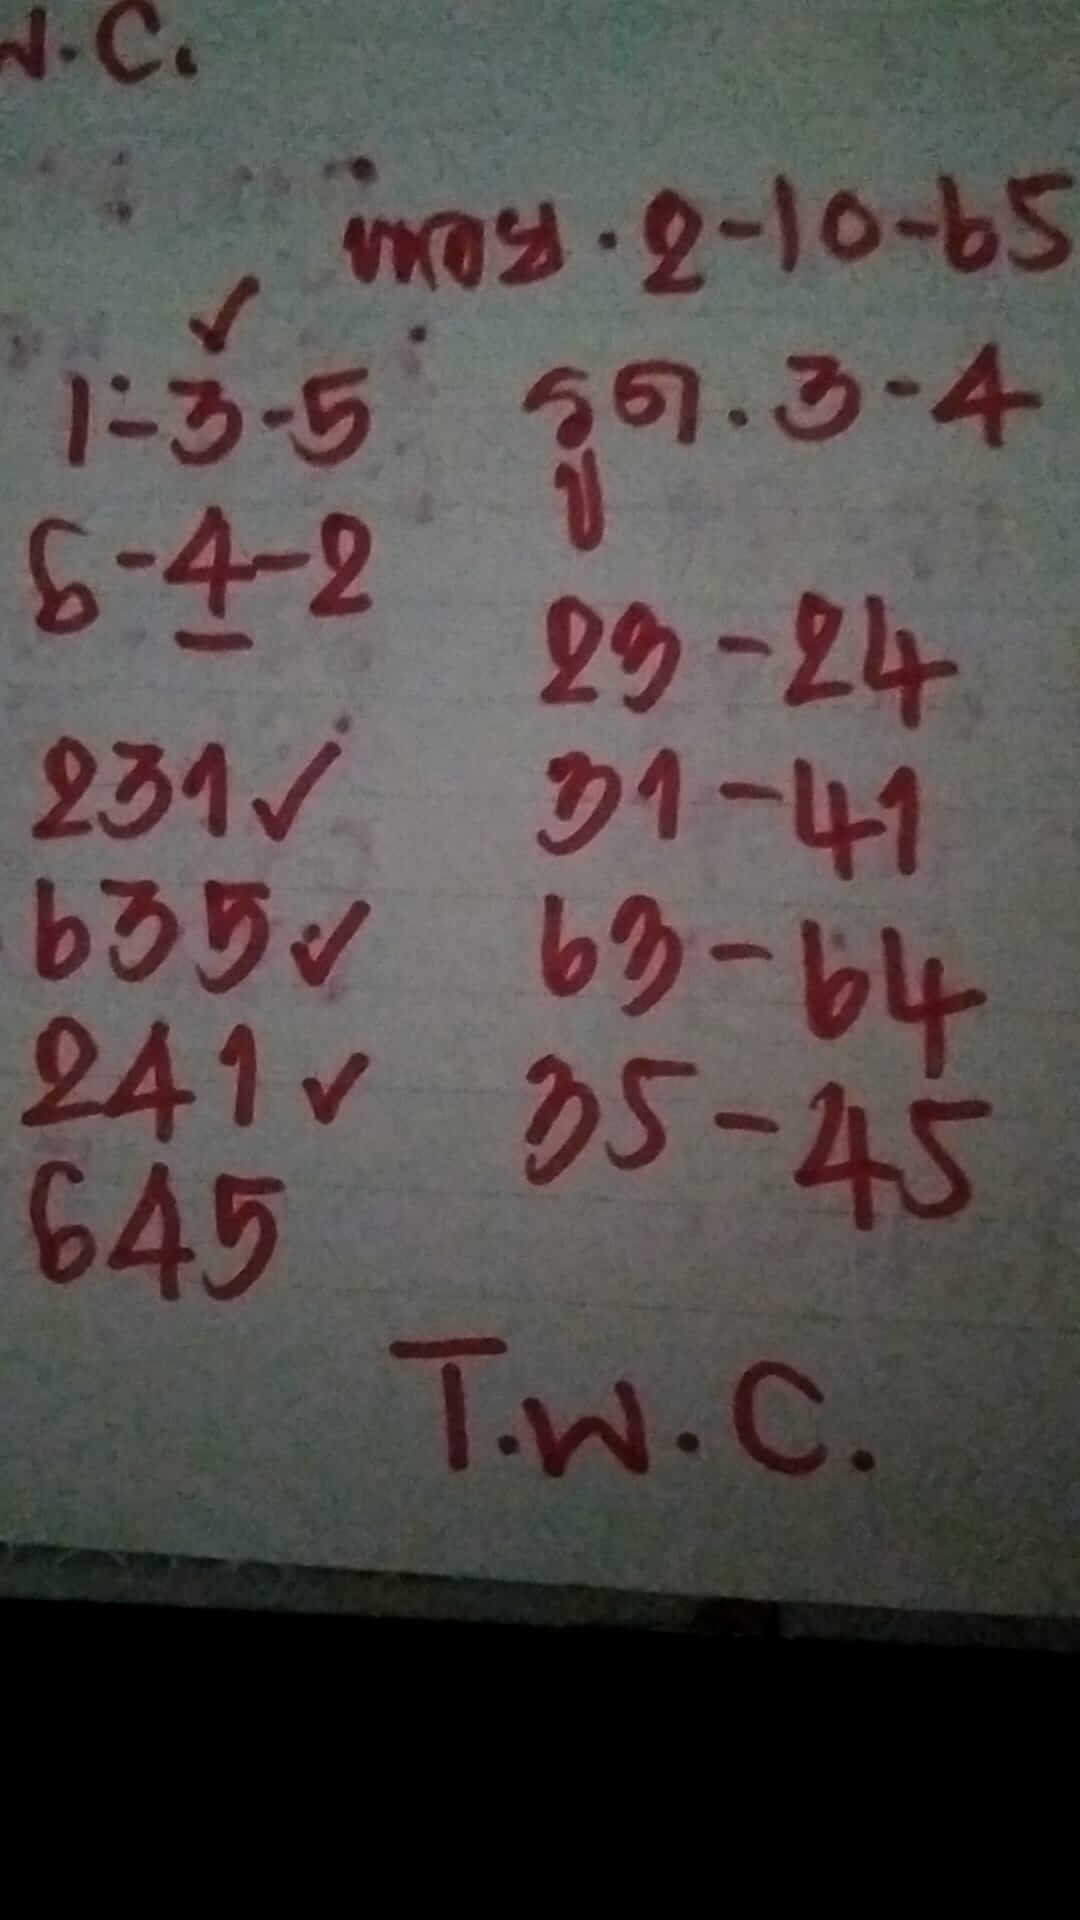 W.C.
หนอย . 2-10-65
✓
1-3-5
รูด . 3-4
6-4-2
23-24
231✓
31-41
635✓
63-64
241✓
35-45
645
T.W.C.